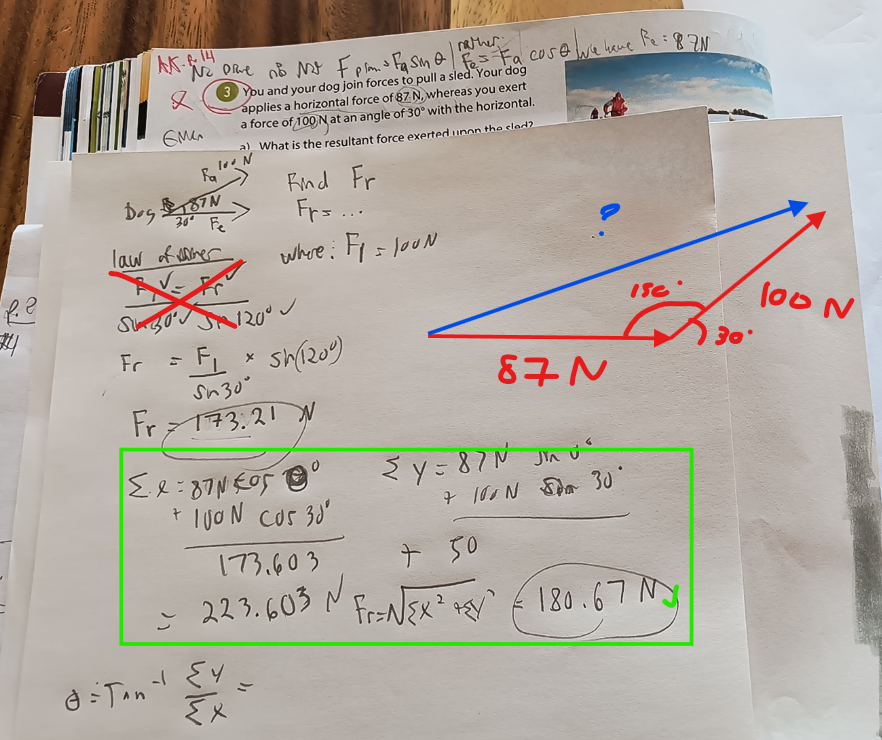 N2 Drive nb N3 F plm = Fa sin θ | rather: Fe = Fa cos θ / We have Fe = 87N
3 You and your dog join forces to pull a sled. Your dog
applies a horizontal force of 87 N, whereas you exert
a force of 100 N at an angle of 30° with the horizontal.
a) What is the resultant force exerted upon the sled?
Fa 100 N
87N
Dog 30° Fe
Find Fr
Fr = ...
where: F1 = 100N
law of
F1 = Fr
sin 30° sin 120°
Fr = F1 × sin(120°)
sin 30°
Fr = 173.21 N
?
150°
30°
100 N
87 N
Σx = 87N cos 0°
+ 100N cos 30°
173.603
= 223.603 N
ΣY = 87N sin 0°
+ 100N sin 30°
+ 50
Fr = √ΣX² + ΣY² = 180.67 N
θ = Tan⁻¹ ΣY =
ΣX